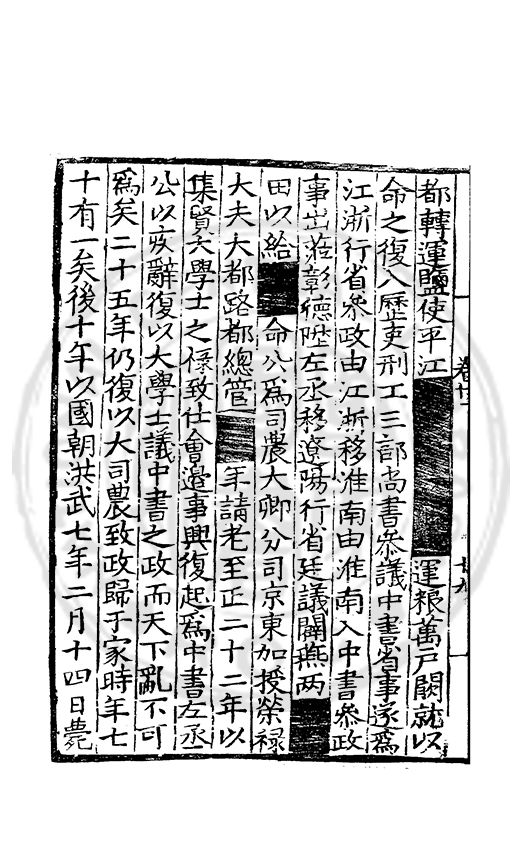 卷廿一
廿九
都轉運鹽使平江運粮萬戶闕就以
命之復入歷吏刑工三部尚書叅議中書省事遂爲
江浙行省叅政由江浙移淮南由淮南入中書叅政
事出莅彰德陞左丞移遼陽行省廷議闢燕两
田以給命公爲司農大卿分司京東加授榮禄
大夫大都路都總管年請老至正二十二年以
集賢大學士之禄致仕會邊事興復起爲中書左丞
公以疾辭復以大學士議中書之政而天下亂不可
爲矣二十五年仍復以大司農致政歸于家時年七
十有一矣後十年以國朝洪武七年二月十四日薨